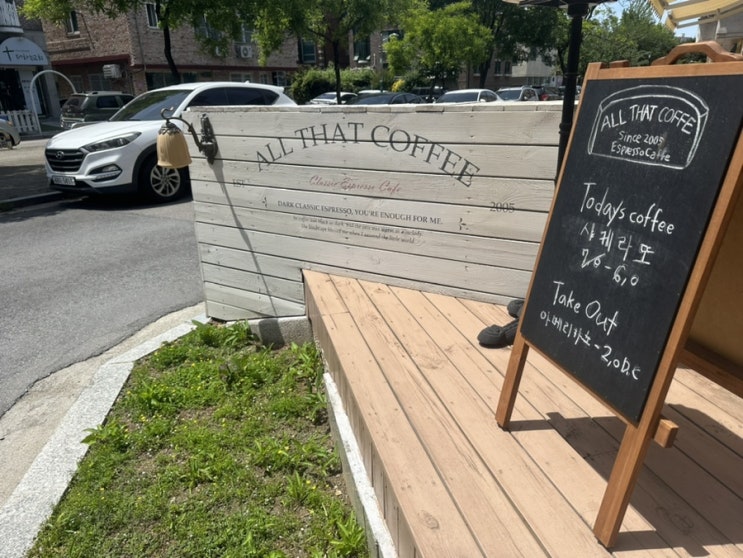 ALL THAT COFFEE
Classic Espresso Cafe
EST.
2005
DARK CLASSIC ESPRESSO, YOU'RE ENOUGH FOR ME.
ALL THAT COFFE
Since 2005
Espresso Caffe
Todays coffee
사케라또
6,0
Take Out
아메리카노-2,0